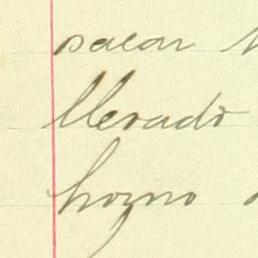 sacar
llevado
horno